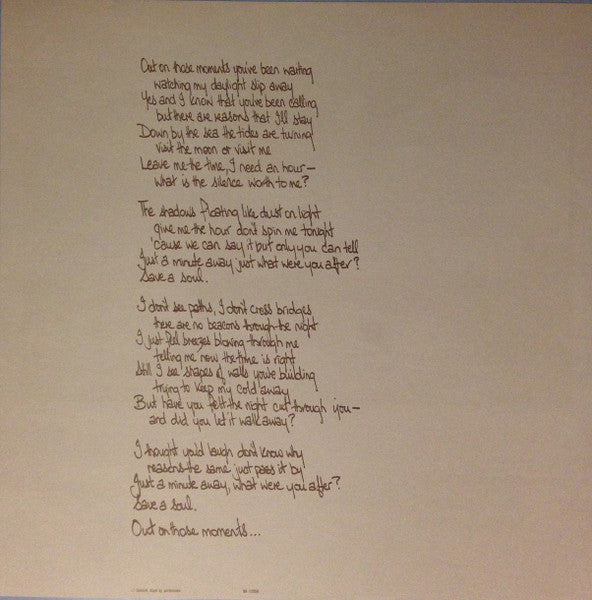 Out on those moments you've been waiting
watching my daylight slip away
Yes and I know that you've been calling
but there are reasons that I'll stay
Down by the sea the tides are turning
visit the moon or visit me
Leave me the time, I need an hour —
what is the silence worth to me?
The shadows floating like dust on light
give me the hour don't spin me tonight
'cause we can say it but only you can tell
Just a minute away just what were you after?
Save a soul.
I don't see paths, I don't cross bridges
there are no beacons through the night
I just feel breezes blowing through me
telling me now the time is right
Still I see shapes & walls you're building
trying to keep my cold away
But have you felt the night cut through you —
and did you let it walk away?
I thought you'd laugh don't know why
reasons the same just pass it by
Just a minute away, what were you after?
Save a soul.
Out on those moments...